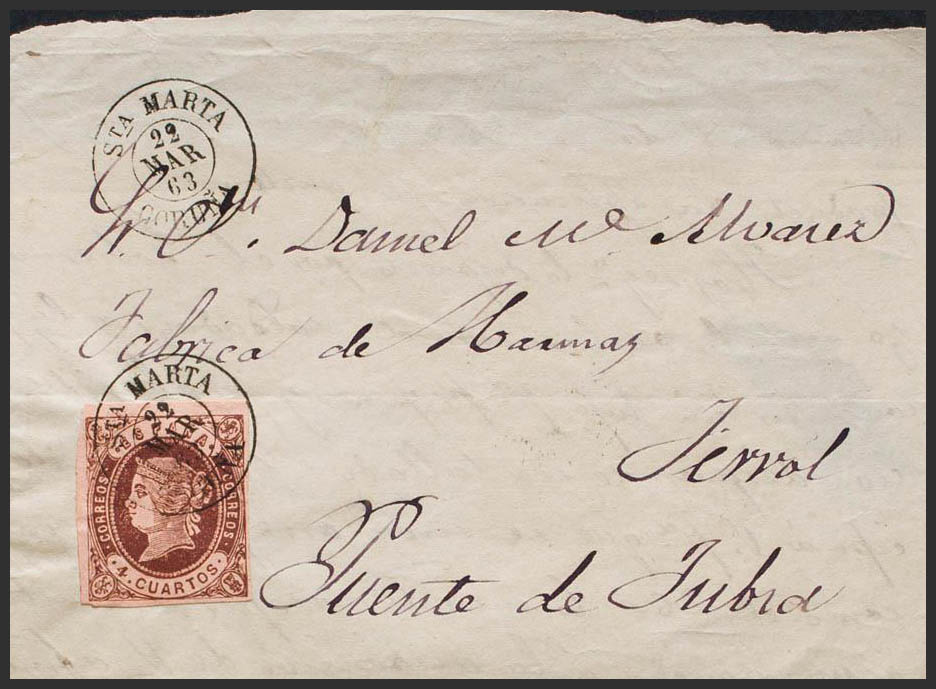 STA MARTA
22
MAR
63
CORUÑA
Daniel Mª Alvarez
Fabrica de Harinas
STA MARTA
22
MAR
ESPAÑA
CORREOS
CORREOS
4. CUARTOS
Ferrol
Puente de Jubia